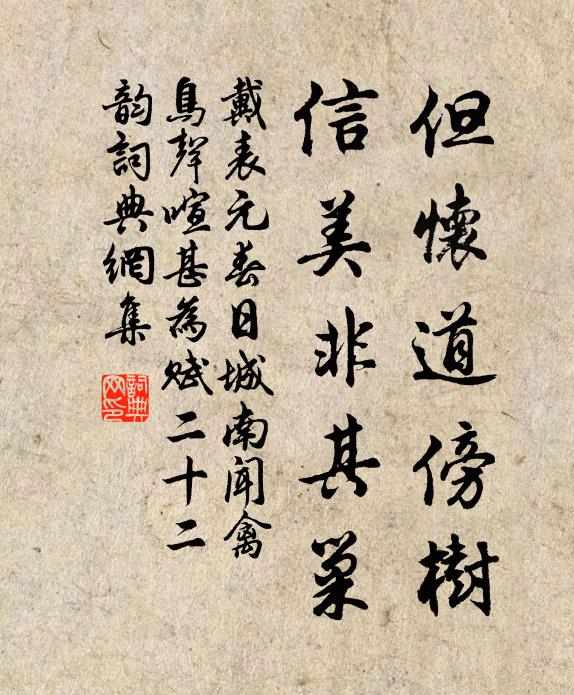 但懷道傍樹
信美非其巢
戴表元春日城南聞禽
鳥聲喧甚為賦二十二
韵詞典網集
詞典
网印